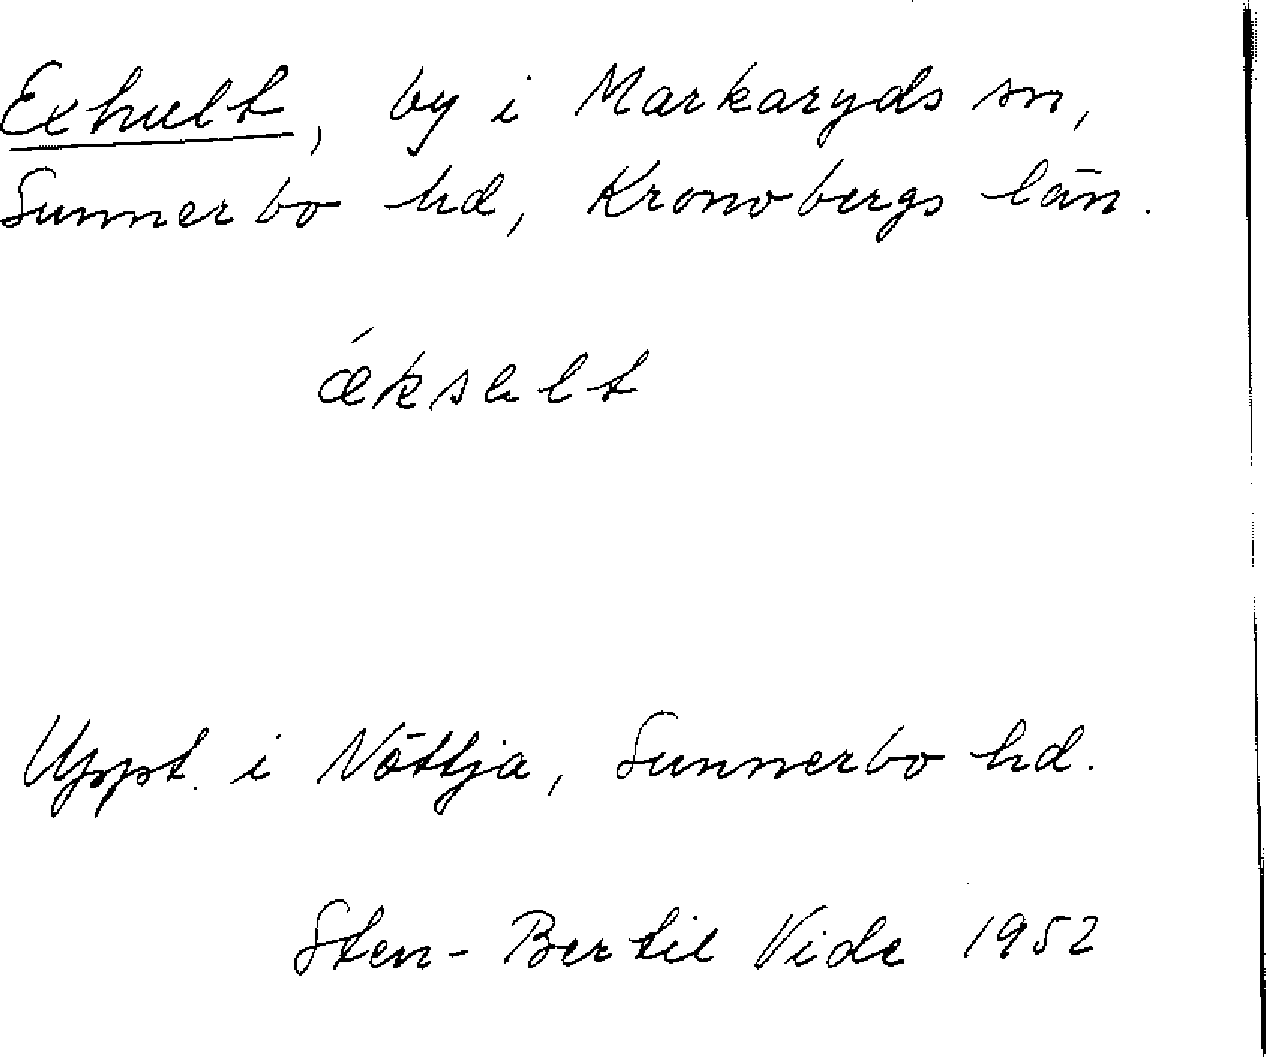 Exhult, by i Markaryds sn,
Sunnerbo hd, Kronobergs län.
ǽksелt
Uppt. i Nöttja, Sunnerbo hd.
Sten-Bertil Vide 1952